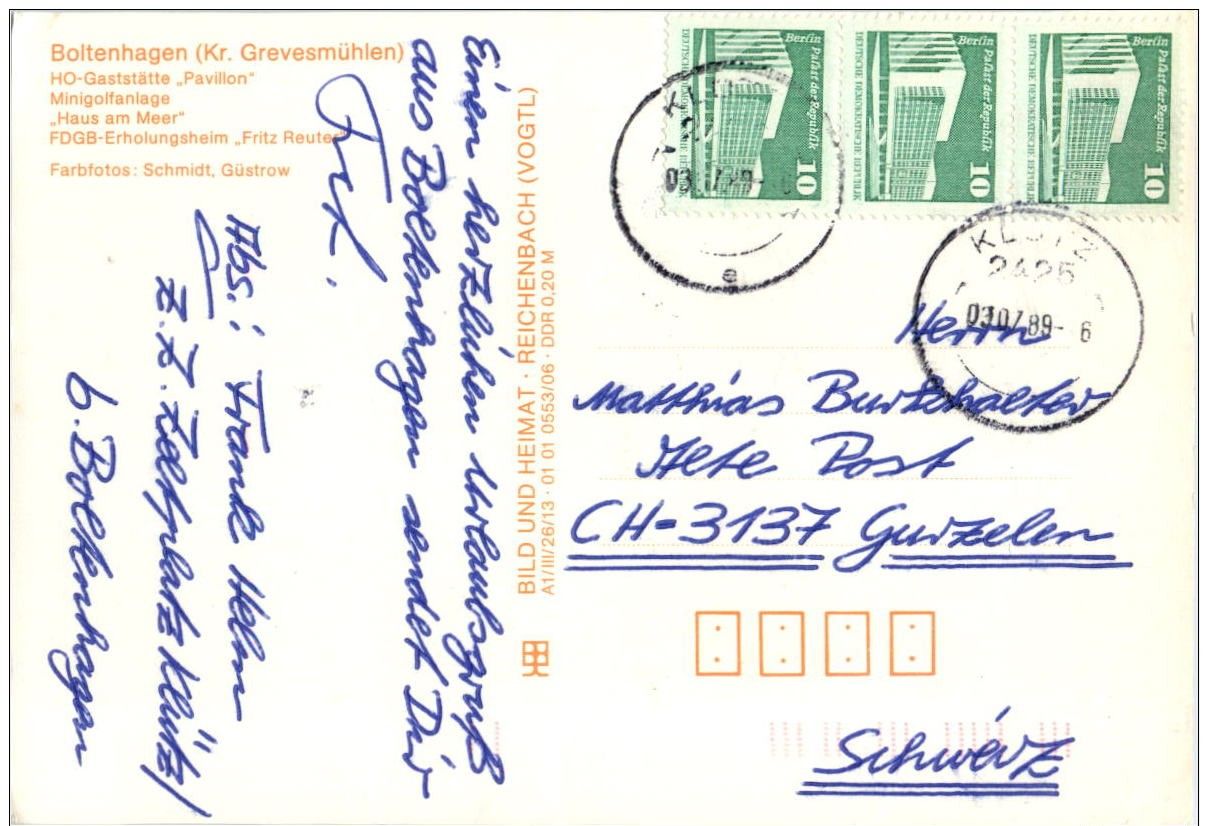 Boltenhagen (Kr. Grevesmühlen)
HO-Gaststätte „Pavillon"
Minigolfanlage
„Haus am Meer"
FDGB-Erholungsheim „Fritz Reuter"
Farbfotos: Schmidt, Güstrow
Einen herzlichen Urlaubsgruß
aus Boltenhagen sendet Dir
Abs.: Frank Helm
z. Z. Zeltplatz Klütz/
b. Boltenhagen
BILD UND HEIMAT · REICHENBACH (VOGTL)
A1/III/26/13 · 01 01 0553/06 · DDR 0,20 M
Berlin Palast der Republik
DEUTSCHE DEMOKRATISCHE REPUBLIK
10
Berlin Palast der Republik
DEUTSCHE DEMOKRATISCHE REPUBLIK
10
Berlin Palast der Republik
DEUTSCHE DEMOKRATISCHE REPUBLIK
10
03.07.89-6
e
KLÜTZ
2425
03.07.89-6
Herrn
Matthias Burkhalter
Alte Post
CH-3137 Gurzelen
Schweiz